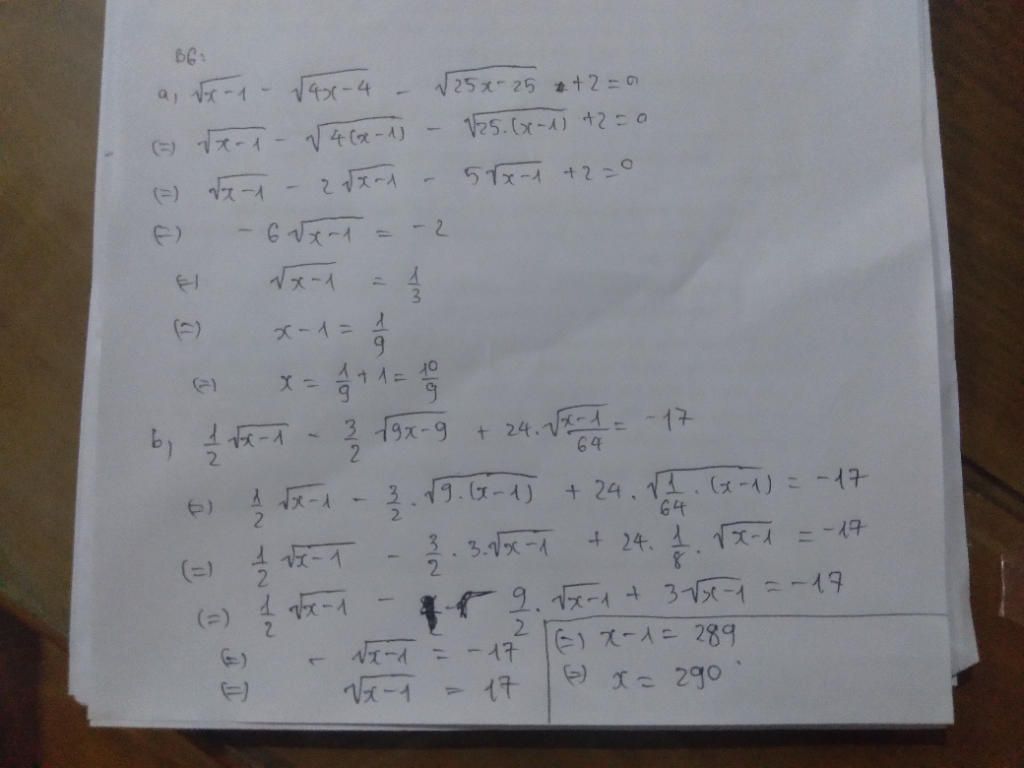 B6:
a, √(x-1) - √(4x-4) - √(25x-25) +2=0
(=) √(x-1) - √(4(x-1)) - √(25.(x-1)) +2=0
(=) √(x-1) - 2√(x-1) - 5√(x-1) +2=0
(=) -6√(x-1) = -2
(=) √(x-1) = 1/3
(=) x-1 = 1/9
(=) x = 1/9 + 1 = 10/9
b, 1/2 √(x-1) - 3/2 √(9x-9) + 24.√((x-1)/64) = -17
(=) 1/2 √(x-1) - 3/2 . √(9.(x-1)) + 24. √(1/64 . (x-1)) = -17
(=) 1/2 √(x-1) - 3/2 . 3.√(x-1) + 24. 1/8 . √(x-1) = -17
(=) 1/2 √(x-1) - 9/2 . √(x-1) + 3√(x-1) = -17
(=) - √(x-1) = -17
(=) √(x-1) = 17
(=) x-1 = 289
(=) x = 290